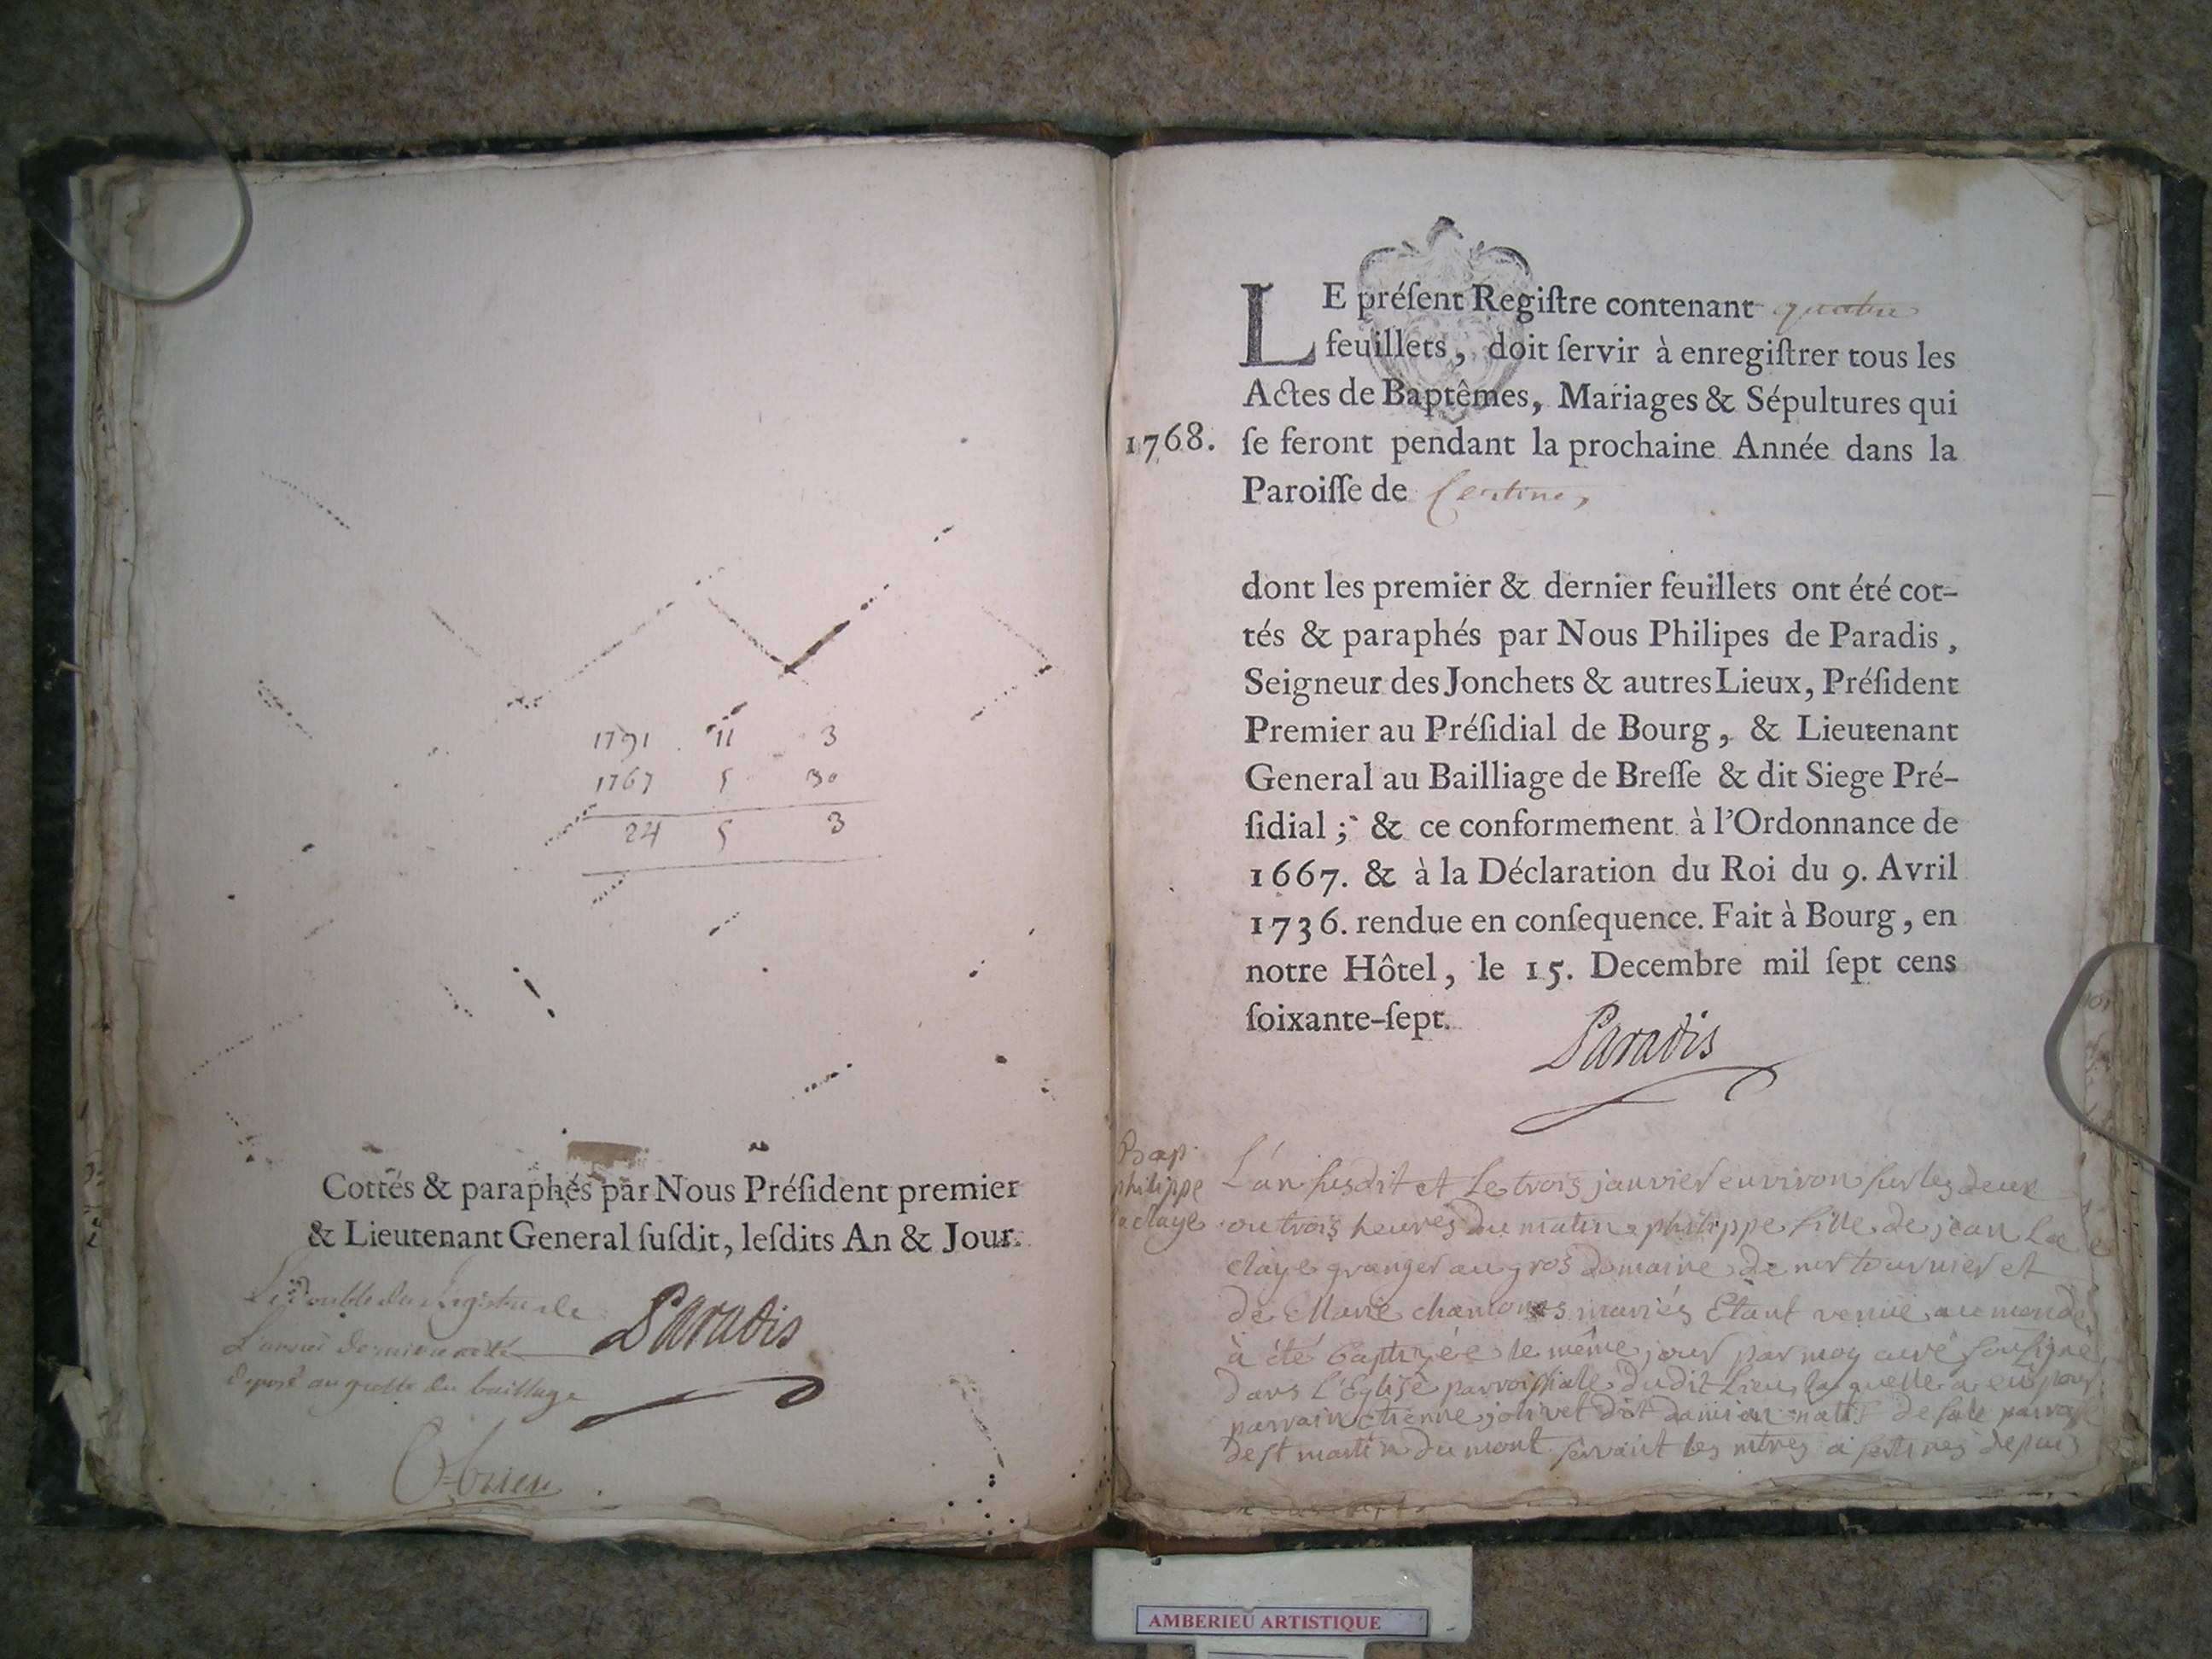 1791 11 3
1767 5 30
24 5 3
Cottés & paraphés par Nous Préſident premier
& Lieutenant General ſuſdit, leſdits An & Jour.
Le double du registre de
L'année derniere a été
déposé au greffe du bailliage
Paradis
LE préſent Regiſtre contenant quatre
feuillets, doit ſervir à enregiſtrer tous les
Actes de Baptêmes, Mariages & Sépultures qui
1768. ſe feront pendant la prochaine Année dans la
Paroiſſe de Certine,
dont les premier & dernier feuillets ont été cot-
tés & paraphés par Nous Philipes de Paradis,
Seigneur des Jonchets & autres Lieux, Préſident
Premier au Préſidial de Bourg, & Lieutenant
General au Bailliage de Breſſe & dit Siege Pré-
ſidial; & ce conformement à l'Ordonnance de
1667. & à la Déclaration du Roi du 9. Avril
1736. rendue en conſequence. Fait à Bourg, en
notre Hôtel, le 15. Decembre mil ſept cens
ſoixante-ſept.
Paradis
Bap.
philippe
laclaye
L'an susdit et le trois janvier environ sur les deux
ou trois heures du matin philippe fille de jean La
claye granger au gros domaine de mr tournier et
de Marie mariés Etant venue au monde
à été baptizée le même jour par moy curé soussigné
dans l'Eglise parroissiale dudit lieu, laquelle a eu pour
parrain etienne jolivet dit damian natif de parroisse
de st martin du mont servant les mtres a sertines depuis
AMBERIEU ARTISTIQUE